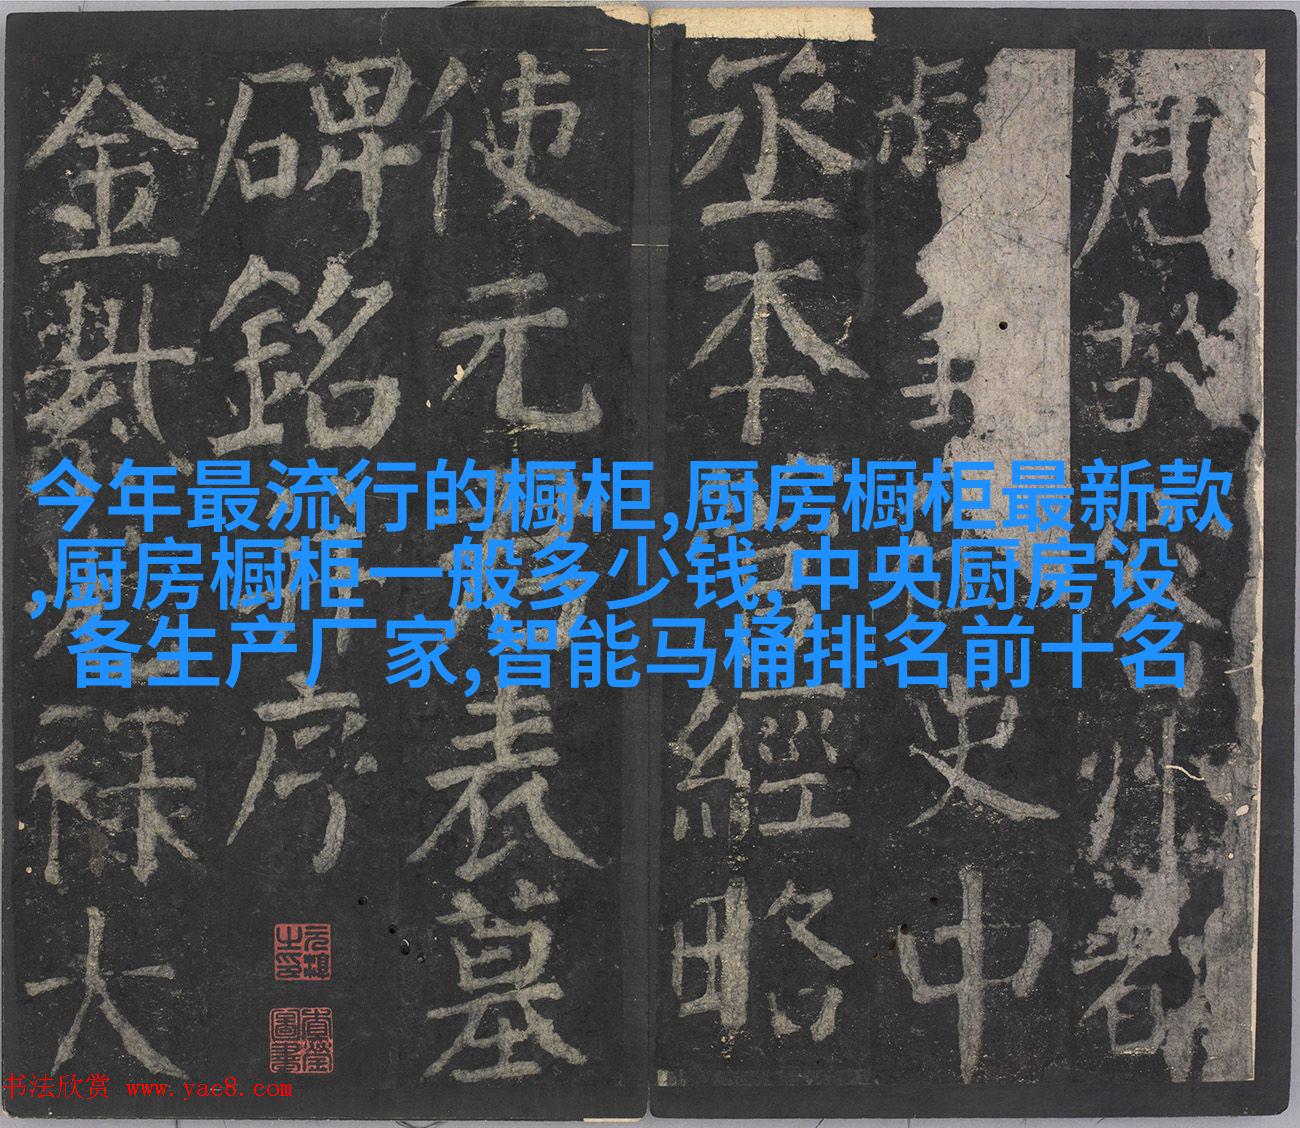 今年最流行的橱柜,厨房橱柜最新款
,厨房橱柜一般多少钱,中央厨房设
备生产厂家,智能马桶排名前十名
故 州都
史中
丞本 經略
使元 表墓
碑銘 序
金 祿大
书法欣赏 www.yac8.com